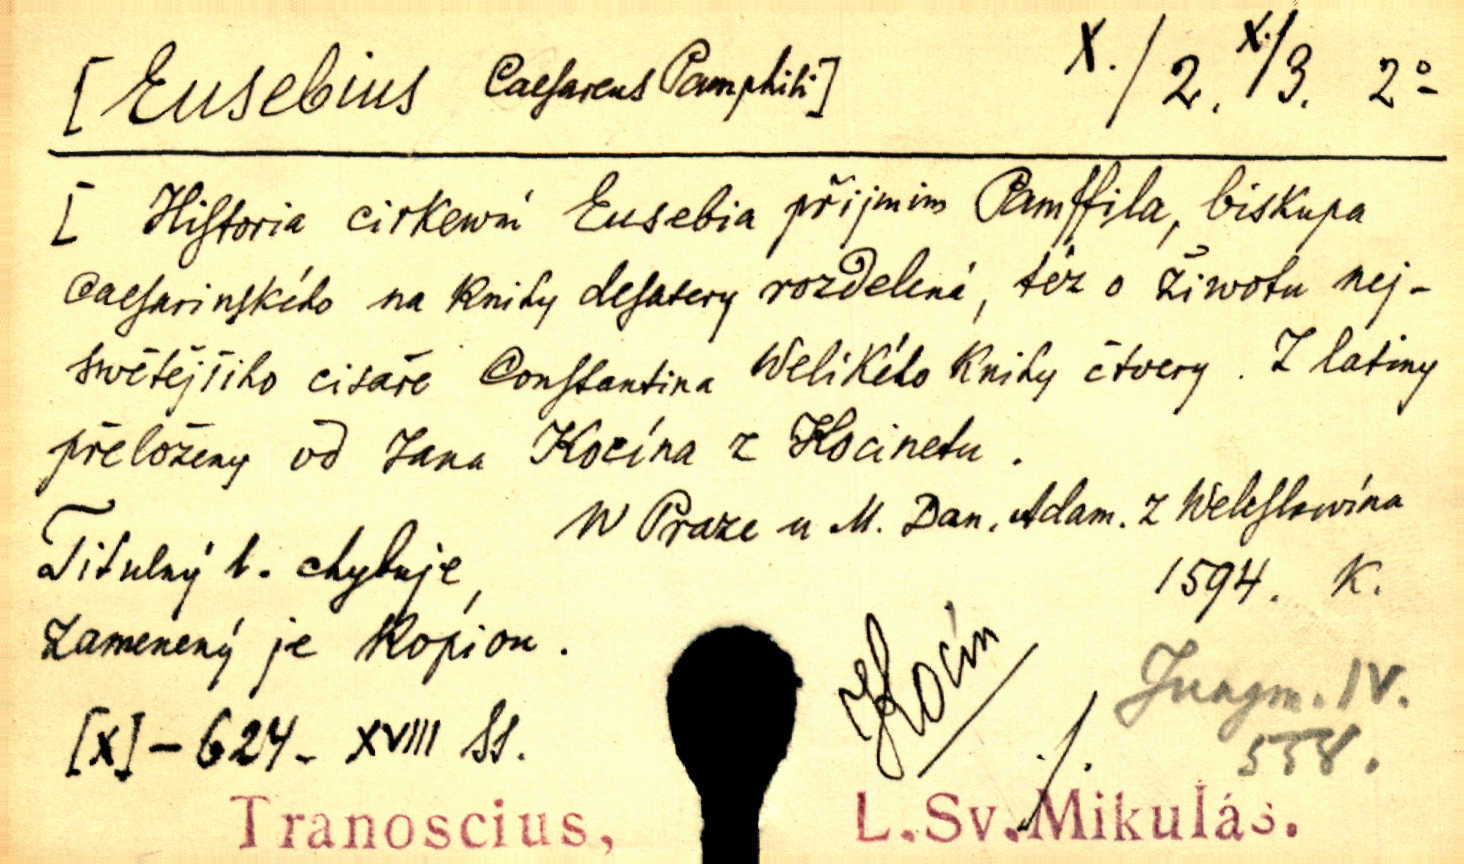 [ Eusebius Caesareus Pamphili] X./2. X./3. 2º
[ Historia cirkewní Eusebia přijmim Pamffila, biskupa
Caesarinského na knihy desatery rozdelená, též o životu nej-
swětějšiho cisaře Constantina Welikého knihy čtvery. Z latiny
přeloženy od Jana Kocína z Kocinetu.
W Praze u M. Dan. Adam. z Weleslawína
Titulný l. chybuje,
1594. K.
zamenený je kópiou.
Kocín
Jungm. IV.
558.
[X] – 624 – XVIII ss.
Tranoscius, L. Sv. Mikuláš.